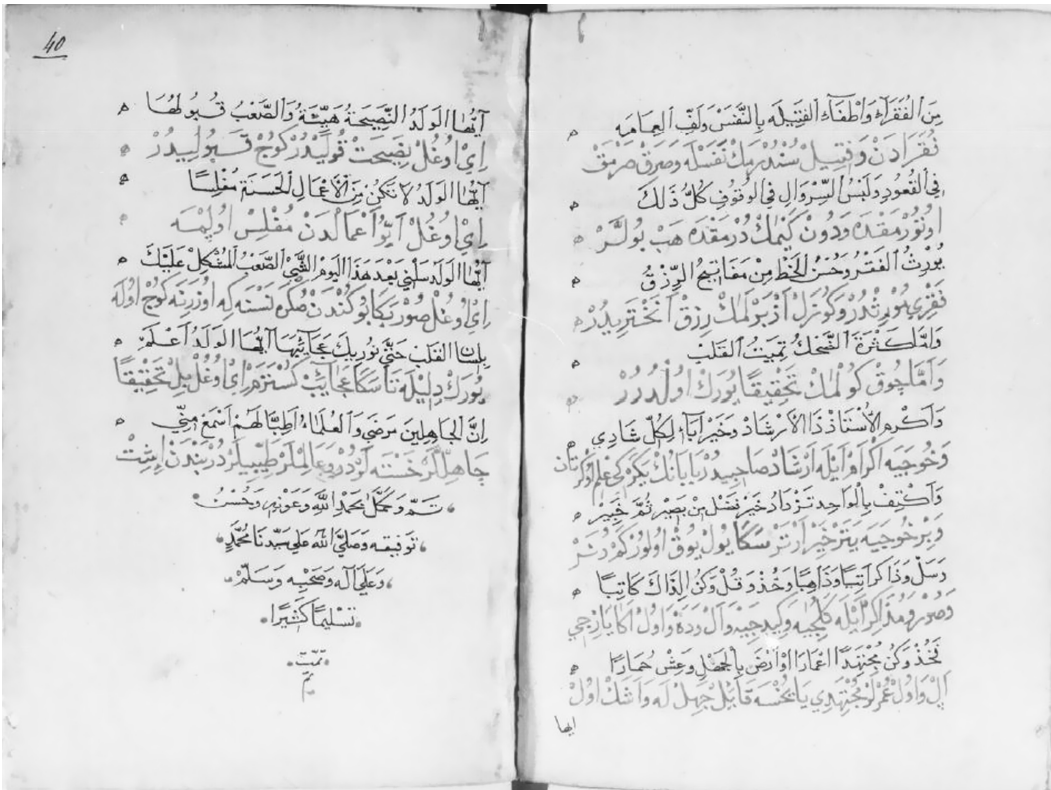 مِنَ الْفُقَرَاءِ وَاطْفَاءِ الْفَتِيلَه بِالنَّفَسْ وَلَفِّ الْعِمَامَه
فُقَرَادَنْ وَفَتِيلْ سُنْدُرْمَكْ نَفَسْلَه وَصَرِقْ صَرْمَقْ
فِي الْقُعُودِ وَلَبْسُ السِّرْوَالِ فِي الْوُقُوفِ كُلُّ ذَلِكَ
اوتُورْمَقْدَه وَدُونْ كَيْمَكْ دُرْمَقْدَه هَبْ بُولَرْ
يُورِثُ الْفَقْرَ وَحُسْنُ الْخَطِّ مِنْ مَفَاتِيحِ الرِّزْقِ
فَقْرِي مُورِثْدُرْ وَكُوزَلْ اَزْبَرْلَمَكْ رِزْقْ اَنَخْتَرِيدُرْ
وَامَّا كَثْرَةُ الضِّحْكُ تُمِيتُ الْقَلْبَ
وَاَمَّا چُوقْ كُولْمَكْ تَحْقِيقًا يُورَكْ اولْدُرُرْ
وَاَكْرِمِ الْاُسْتَاذْ ذَا الْاَرْشَادْ وَخَيْرَ اَبَاءٍ لِكُلِّ شَادِي
وَخُوجَيَه اكْرَامْ اَيْلَه اَرْشَادْ صَاحِبِيدُرْ بَابَانَكْ يَكْرَكِي عِلْمْ اوكْرَتَانْ
وَاَكْتَفِ بِالْوَاحِدِ تَزْدَادُ خَيْرْ فَضْلْ مِنْ بَصِيرْ ثُمَّ خَبِيرْ
وَبِرْ خُوجَيَه يَتَرْ خَيْرْ اَرْتَرْ سَكَا يُولْ يُوقْ اولُورْ كَمْ
وَسَلْ وَذَاكِرْ اٰتِيًا وَذَاهِبًا وَخُذْ وَقُلْ وَكُنْ لِذَاكَ كَاتِبًا
وَصُورْ وَمُذَاكِرَه اَيْلَه كَلِيجِيَه وَكِيدَجِيَه وَآلْ وَدَه وَاولْ اَكَا يَازِيجِي
فَخُذْ وَكُنْ مُجْتَهِدًا اعْمَارَا اوْ اَرْضَ بِالْجَهْلِ وَعِشْ حُمَارًا
اَلْ وَاولْ عُمْرْلَرْ مُجْتَهِدِي يَاخُسَه قَائِلْ جَهِلْ لَه وَاَشَكْ اولْ
ايها
40
اَيُّهَا الْوَلَدُ النَّصِيحَةُ هَيِّنَةٌ وَالصَّعْبُ قُبُولُهَا
اِيْ اوغُلْ نَصِيحَتْ قُولَيْدُرْ كُوجْ قَبُولِيدُرْ
اَيُّهَا الْوَلَدُ لَا تَكُنْ مِنَ الْاَعْمَالِ الْحَسَنَةِ مُفْلِسًا
اِيْ اوغُلْ اَيُّو اَعْمَالدَنْ مُفْلِسْ اولْمَه
اَيُّهَا الْوَلَدُ سَلْنِي بَعْدَ هَذَا الْيَوْمِ الشَّيْءَ الصَّعْبَ الْمُشْكِلَ عَلَيْكَ
اِيْ اوغُلْ صُورْ بَكَا بُو كُنْدَنْ صُكْرَه نَسْنَه كِه اوزَرِنَه كُوجْ اولَه
بِلِسَانِ الْقَلْبِ حَتَّى نُورِيكَ عَجَائِبَهَا اَيُّهَا الْوَلَدُ اَعْلَمْ
يُورَكْ دِلِيلَه تَا سَكَا عَجَائِبْ كُسْتَرَمْ اِيْ اوغُلْ بِلْ تَحْقِيقًا
اِنَّ الْجَاهِلِينَ مَرْضَى وَالْعُلَمَاءُ اَطِبَّا لَهُمْ اَسْمَعْ مِنِّي
جَاهِلْلَرْ خَسْتَه لَرْدُرْ وَعَالِمْلَرْ طَبِيبْلَرْدُرْ بَنْدَنْ اِشِتْ
تَمَّ وَكَمُلَ بِحَمْدِ اللّٰهِ وَعَوْنِهِ وَحُسْنِ
تَوفِيقِه وَصَلَّى اللّٰهُ عَلَى سَيِّدِنَا مُحَمَّدٍ
وَعَلَى آلِه وَصَحْبِه وَسَلَّمْ
تَسْلِيمًا كَثِيرًا
تمّت
تمّ